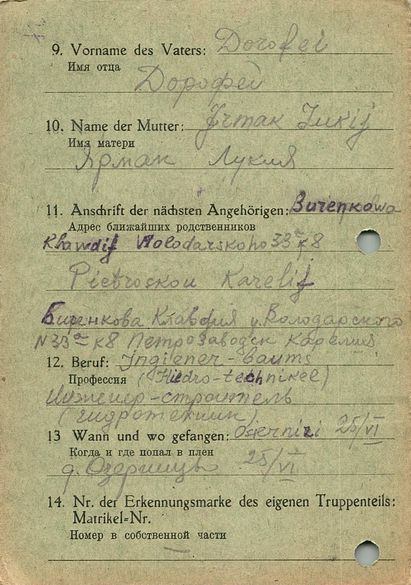 9. Vorname des Vaters: Dorofei
Имя отца
Дорофей
10. Name der Mutter:
Имя матери
Ярмак Лукия
11. Anschrift der nächsten Angehörigen: Burenkowa
Адрес ближайших родственников
Klawdij Wolodarskoho 33a k8
Pietroskou Karelij
Буренкова Клавдия у. Володарского
N33а к8 Петрозаводск Карелия
12. Beruf: Ingiener-baums
Профессия (Hidro-technikel)
Инженер-строитель
(гидротехник)
13 Wann und wo gefangen: 25/VI
Когда и где попал в плен
д. 25/VI
14. Nr. der Erkennungsmarke des eigenen Truppenteils:
Matrikel-Nr.
Номер в собственной части